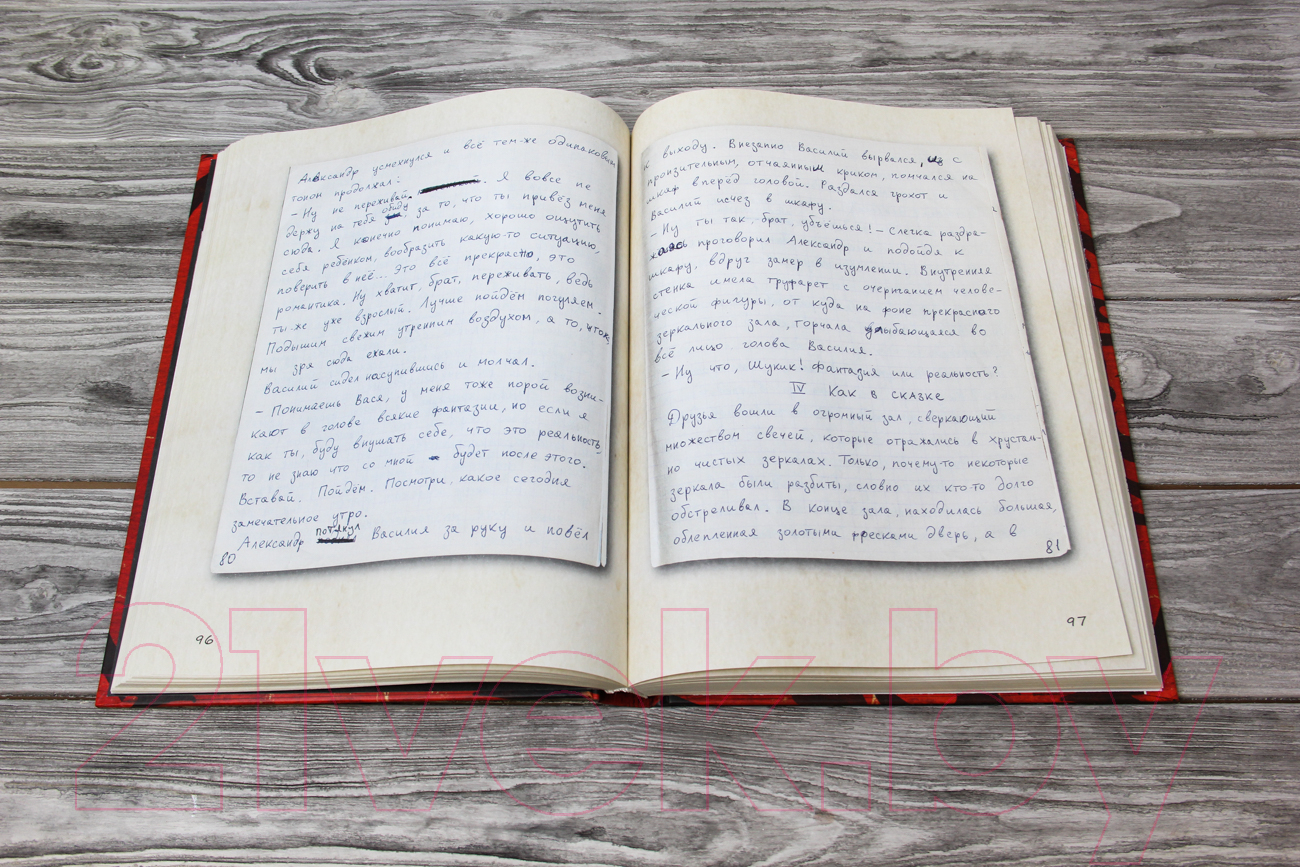 Александр усмехнулся и всё тем-же одинаковым
тоном продолжал:
- Ну не переживай. Я вовсе не
обиду
держу на тебя за то, что ты привёз меня
сюда. Я конечно понимаю, хорошо ощутить
себя ребёнком, вообразить какую-то ситуацию,
поверить в неё... Это всё прекрасно, это
романтика. Ну хватит, брат, переживать, ведь
ты-же уже взрослый. Лучше пойдём погуляем.
Подышим свежим утренним воздухом, а то, что-ж,
мы зря сюда ехали.
Василий сидел насупившись и молчал.
- Понимаешь Вася, у меня тоже порой возни-
кают в голове всякие фантазии, но если я
как ты, буду внушать себе, что это реальность,
то не знаю что со мной будет после этого.
Вставай. Пойдём. Посмотри, какое сегодня
замечательное утро.
потянул
Александр Василия за руку и повёл
80
96
к выходу. Внезапно Василий вырвался, с
пронзительным, отчаянным криком, помчался на
шкаф вперёд головой. Раздался грохот и
Василий исчез в шкафу.
- Ну ты так, брат, убьёшься! - Слегка раздра-
жаясь проговорил Александр и подойдя к
шкафу, вдруг замер в изумлении. Внутренняя
стенка имела труфарет с очертанием челове-
ческой фигуры, от куда на фоне прекрасного
зеркального зала, торчала улыбающаяся во
всё лицо голова Василия.
- Ну что, Шукик! фантазия или реальность?
IV Как в сказке
Друзья вошли в огромный зал, сверкающий
множеством свечей, которые отражались в хрусталь-
но чистых зеркалах. Только, почему-то некоторые
зеркала были разбиты, словно их кто-то долго
обстреливал. В конце зала, находилась большая,
облепленная золотыма фресками дверь, а в
81
97
21vek.by